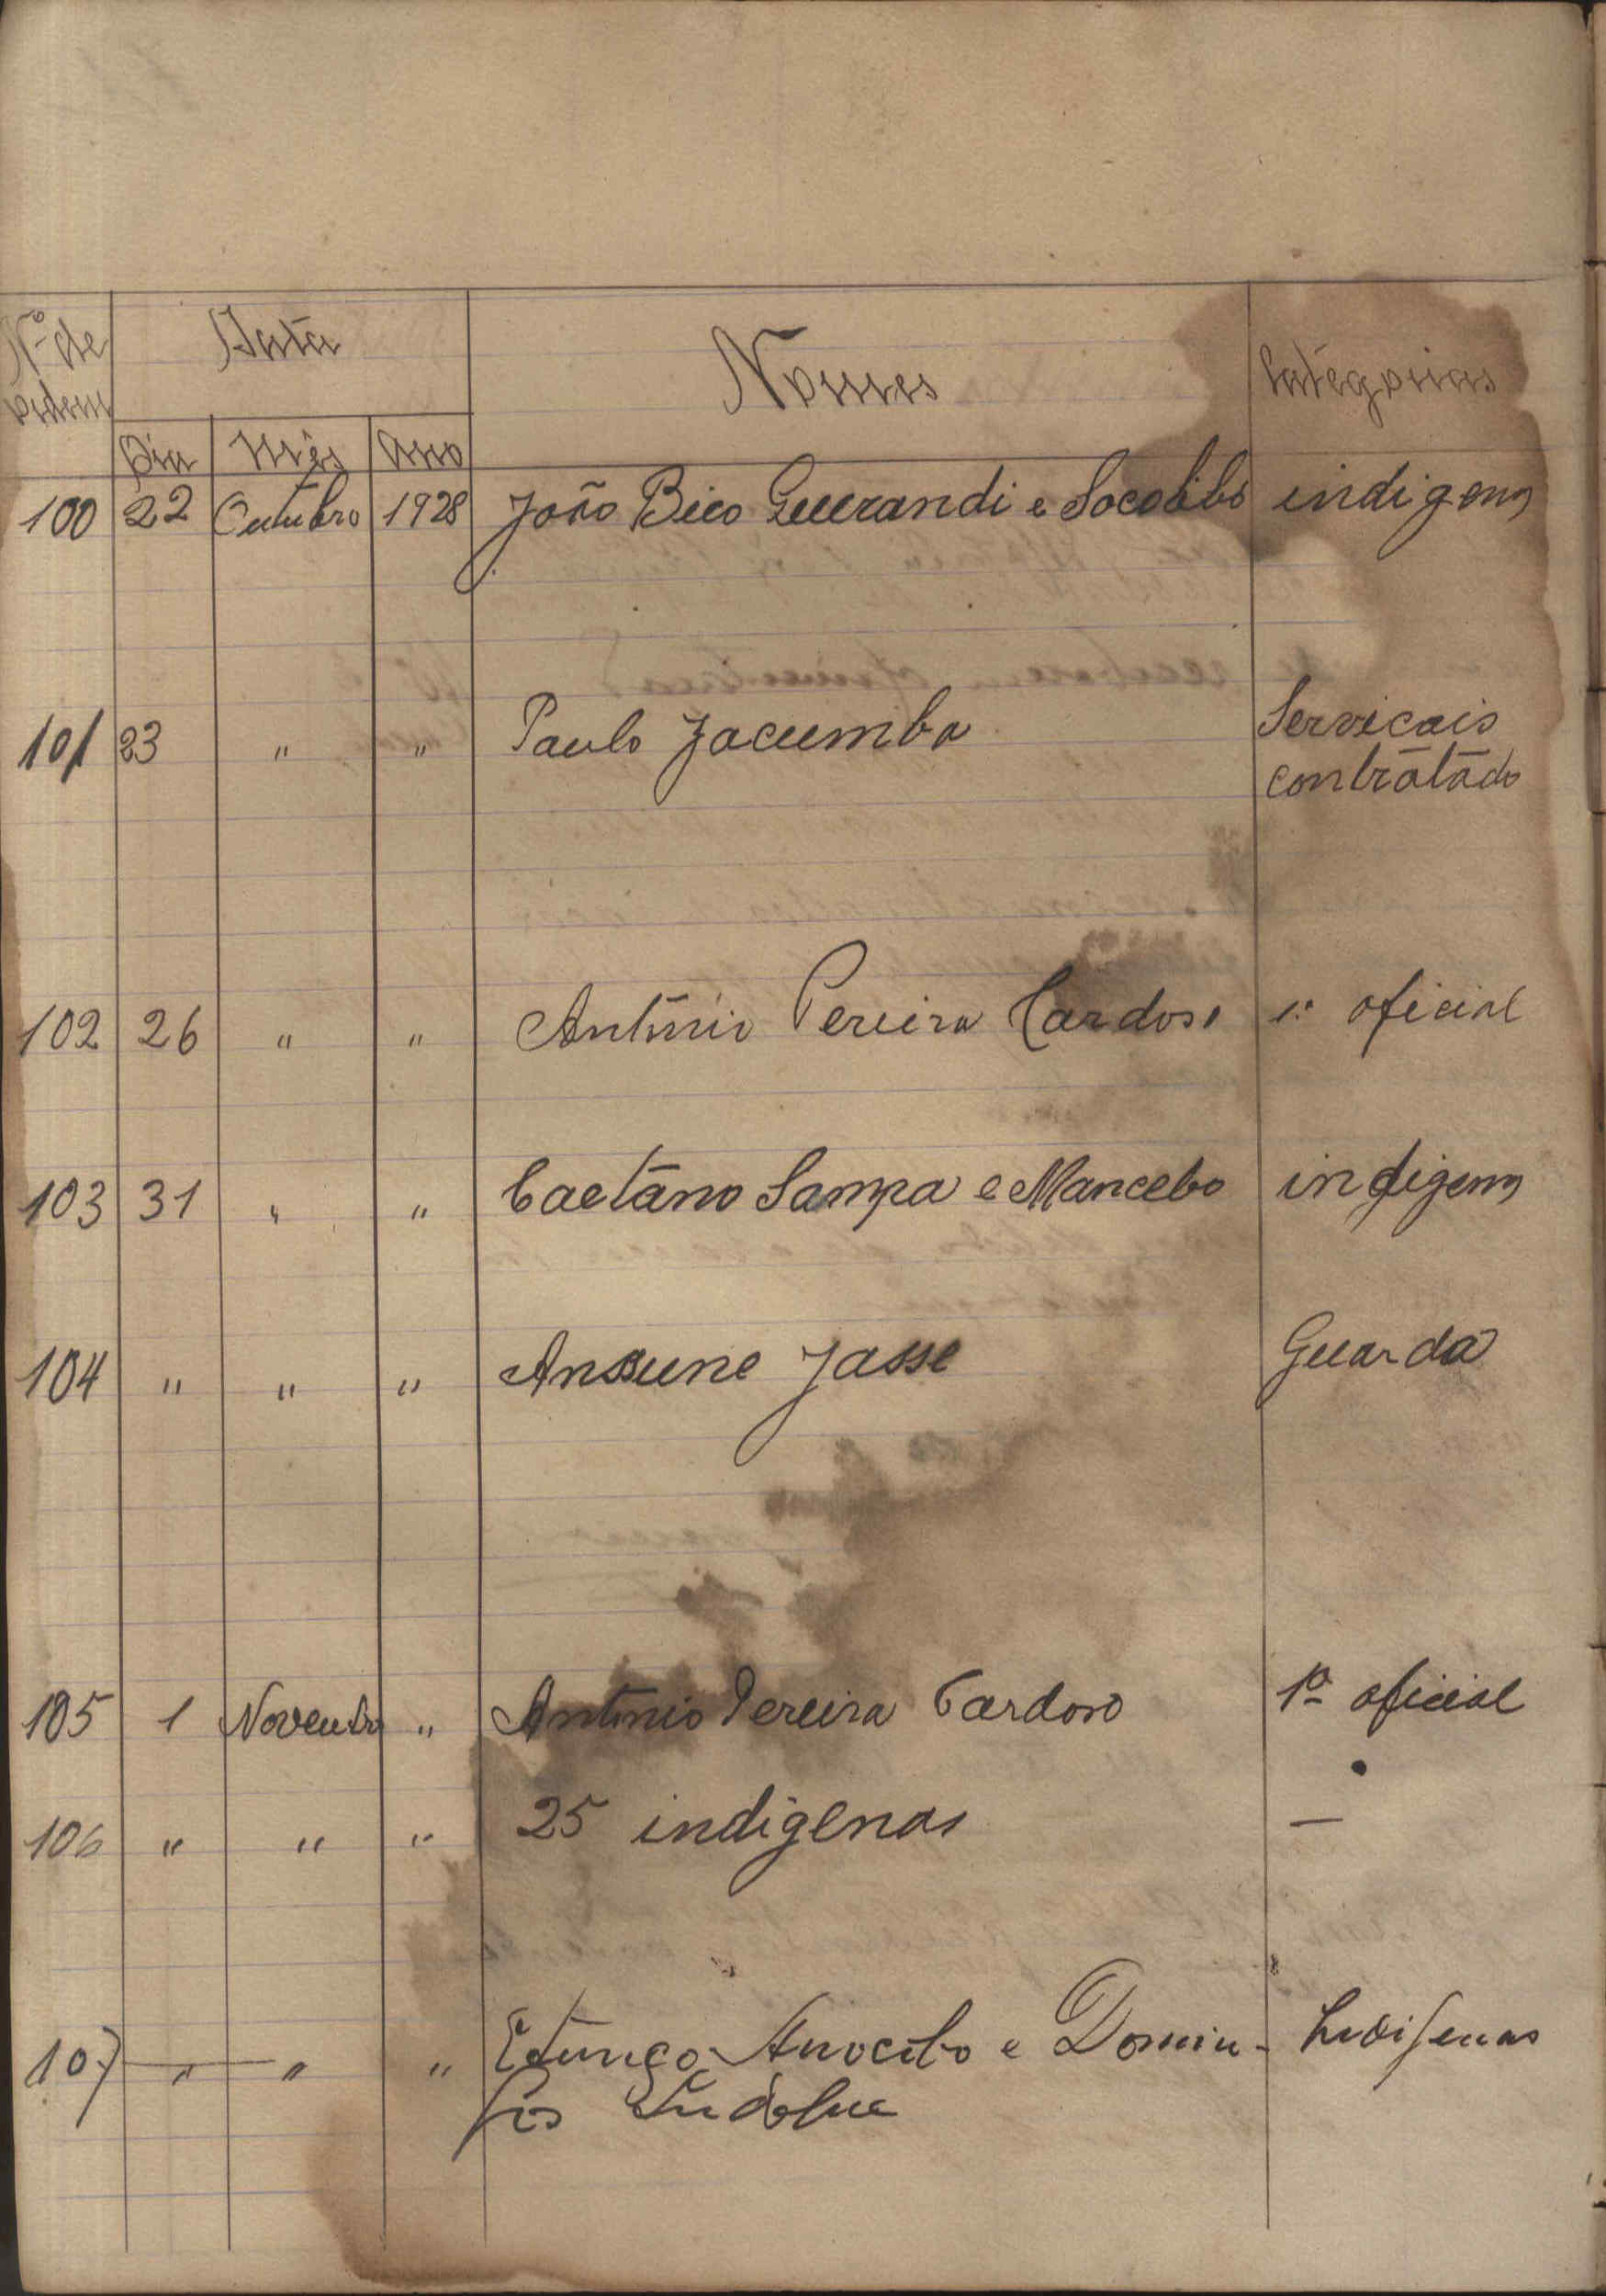 Nº de ordem Data Nomes Categorias
Dia Mês Ano
100 22 Outubro 1928 João Bico Guerandi e indigena
101 23 " " Paulo Jacumba Serviçais
contratado
102 26 " " António Pereira Cardoso 1º oficial
103 31 " " Caetano Sampa e Mancebo indigena
104 " " " Ansune Jasse Guarda
105 1 Novembro " António Pereira Cardoso 1º oficial
106 " " " 25 indigenas —
107 " " " e Domin- Indigenas
gos